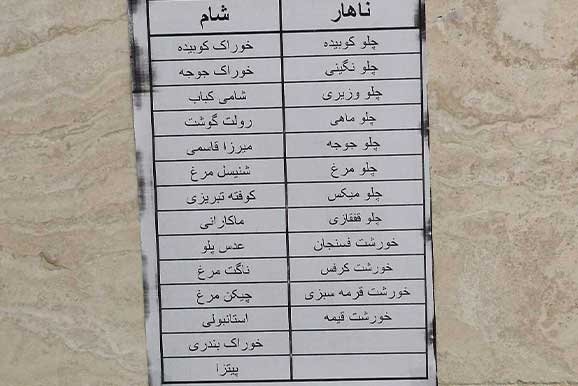 ناهار	شام
چلو کوبیده	خوراک کوبیده
چلو نگینی	خوراک جوجه
چلو وزیری	شامی کباب
چلو ماهی	رولت گوشت
چلو جوجه	میرزا قاسمی
چلو مرغ	شنیسل مرغ
چلو میکس	کوفته تبریزی
چلو قفقازی	ماکارانی
خورشت فسنجان	عدس پلو
خورشت کرفس	ناگت مرغ
خورشت قرمه سبزی	چیکن مرغ
خورشت قیمه	استانبولی
خوراک بندری
پیتزا